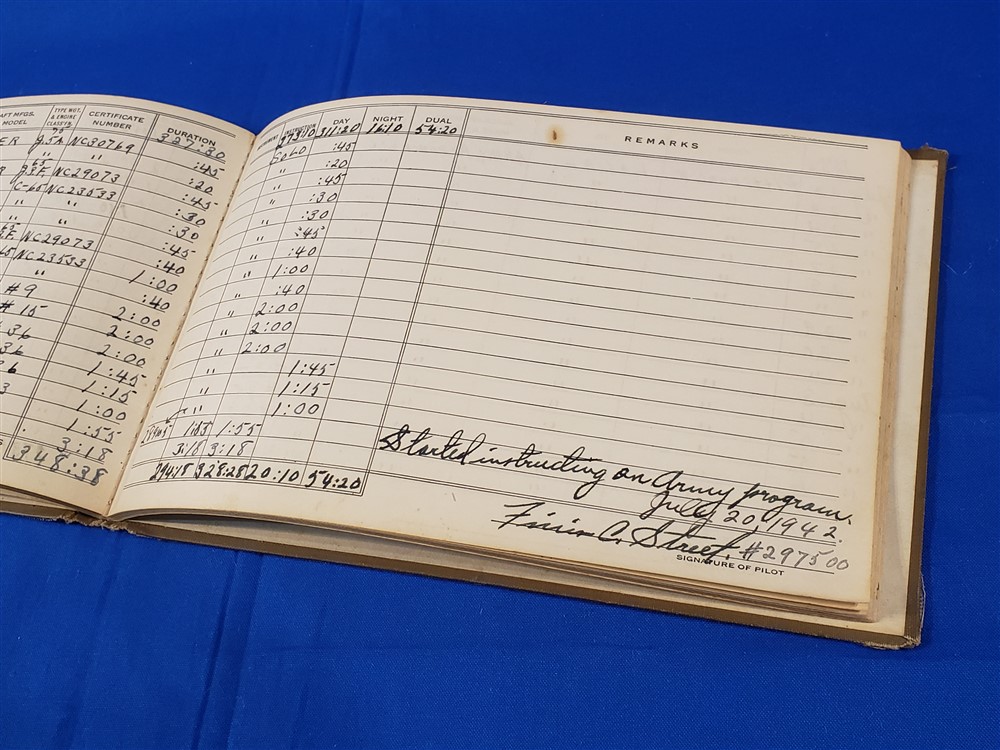 AFT MFGS. MODEL TYPE MOT. & ENGINE CLASS'FN. CERTIFICATE NUMBER DURATION INSTRUCTION DAY NIGHT DUAL REMARKS
327:30 273:10 311:20 16:10 54:20
ER 75 NC30769 :45 SOLO :45
" " :20 " :20
65 NC29073 :45 " :45
C-65 NC23533 :30 " :30
" " :30 " :30
" " :45 " :45
65 NC29073 :40 " :40
65 NC23533 1:00 " 1:00
" :40 " :40
#9 2:00 " 2:00
#15 2:00 " 2:00
36 2:00 " 2:00
36 1:45 " 1:45
36 1:15 " 1:15
3 1:00 " 1:00
1:55 1:55
3:18 3:18 3:18
348:38 294:18 328:28 20:10 54:20
Started instructing on Army program.
July 20, 1942.
C. Street #297500
SIGNATURE OF PILOT